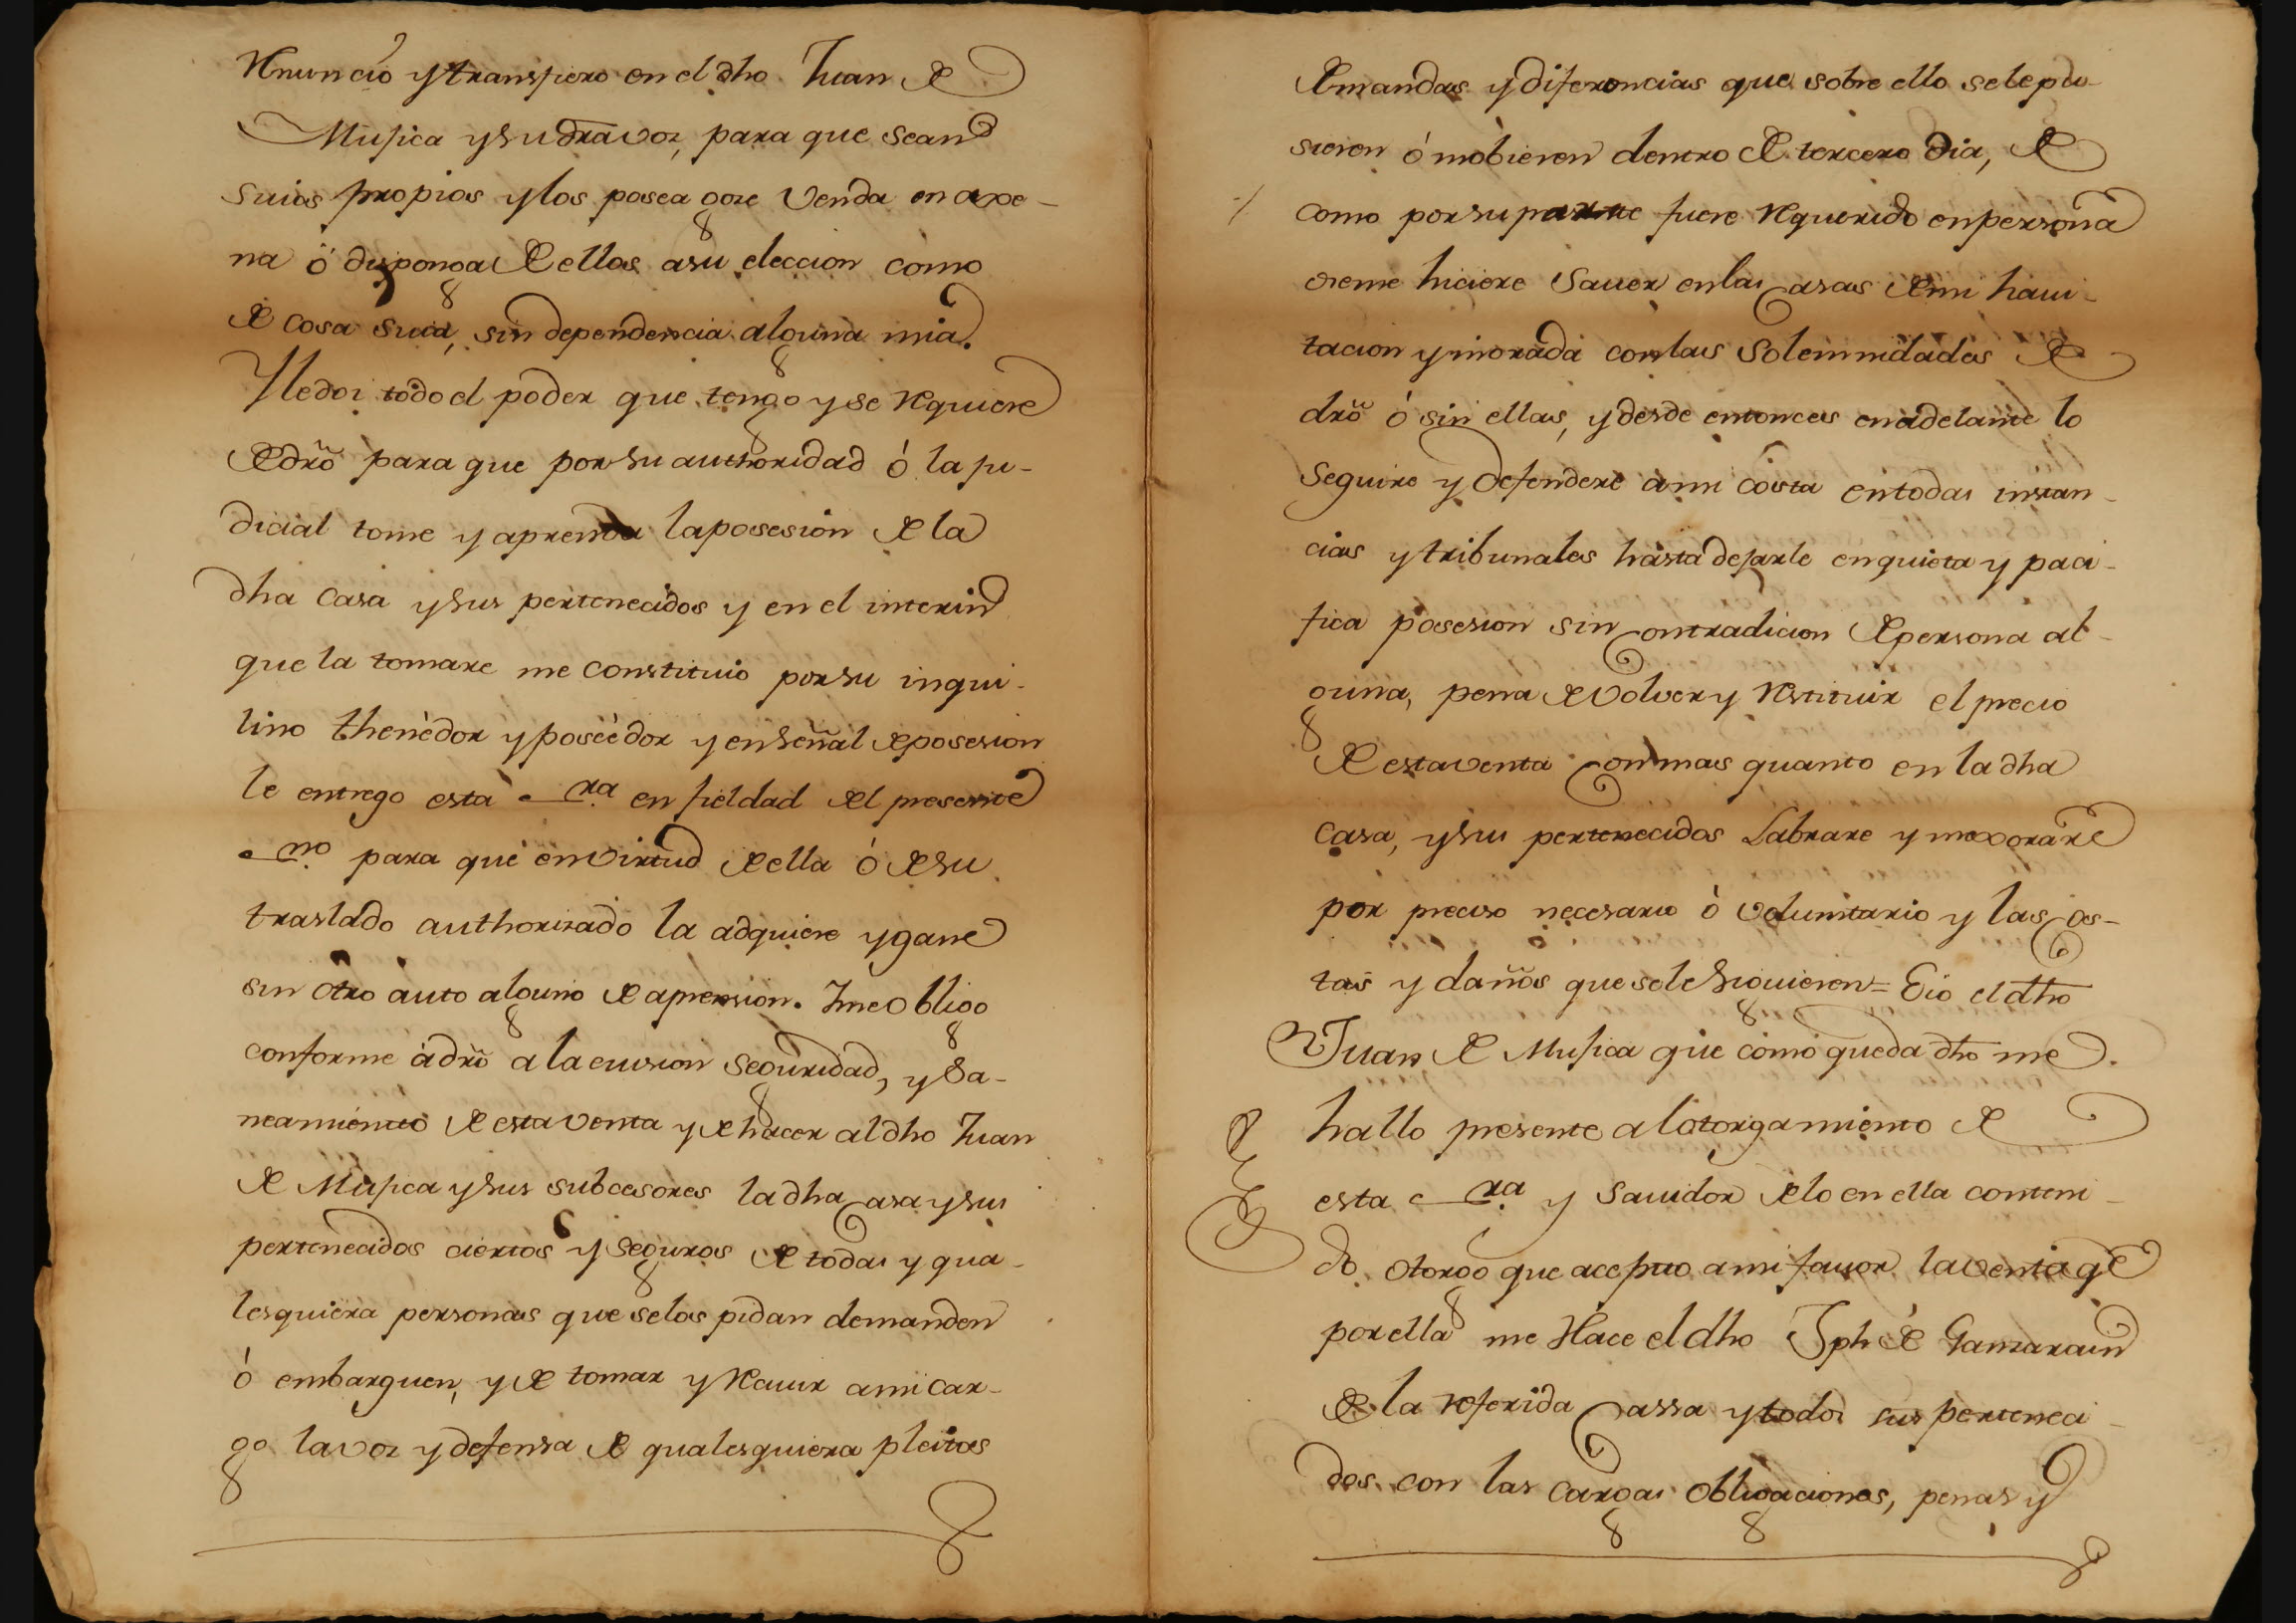 Renuncio y transfiero en el dho Juan de
Mujica y su dra voz, para que sean
suios propios y los posea goze venda enaxe-
na ó disponga de ellos a su eleccion como
de cosa suia, sin dependencia alguna mia.
Y le doi todo el poder que tengo y se requiere
de dr̃o para que por su authoridad ó la ju-
dicial tome y aprenda la posesion de la
dha casa y sus pertenecidos y en el interin
que la tomare me constituio por su inqui-
lino thenedor y poseèdor y en señal de posesion
le entrego esta e ra en fieldad del presente
e no para que en virtud de ella ó de su
traslado authorizado la adquiere y gane
sin otro auto alguno de aprension. Y me obligo
conforme á dr̃o a la eviszion seguridad, y sa-
neamiento de esta venta y de hacer al dho Juan
de Mujica y sus subcesores la dha casa y sus
pertenecidos ciertos y seguros de todas y qua-
lesquiera personas que se los pidan demanden
ó embarguen, y de tomar y recivir a mi car-
go la voz y defensa de qualesquiera pleitos
Demandas y diferencias que sobre ello se le pu-
sieren ó mobieren dentro de tercero dia, de
como por su parte fuere requerido en persona
ó se me hiciere saver en las casas de mi havi-
tacion y morada con las solemnidades de
dr̃o ó sin ellas, y desde entonces en adelante lo
seguire y defendere a mi costa en todas instan-
cias y tribunales hasta dejarle en quieta y paci-
fica posesion sin contradicion de persona al-
guna, pena de volver y restituir el precio
de esta venta con mas quanto en la dha
casa, y sus pertenecidos labrare y mexorare
por preciso necesario ó voluntario y las cos-
tas y daños que se le siguieren= E io el dho
Juan de Mujica que como queda dho me
hallo presente al otorgamiento de
esta e ra y savidor de lo en ella conteni-
do otorgo que acepto a mi favor la venta q̃e
por ella me hace el dho Jph de Gamarain
de la referida cassa y todos sus perteneci-
dos con las cargas obligaciones, penas y